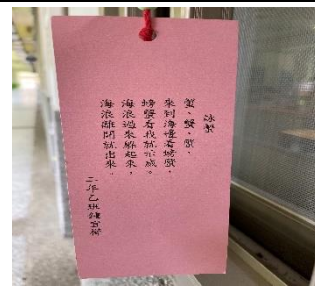 詠蟹
蟹、蟹、蟹，
來到海邊看螃蟹，
螃蟹看我就示威。
海浪過來躲起來，
海浪離開就出來。
二年乙班